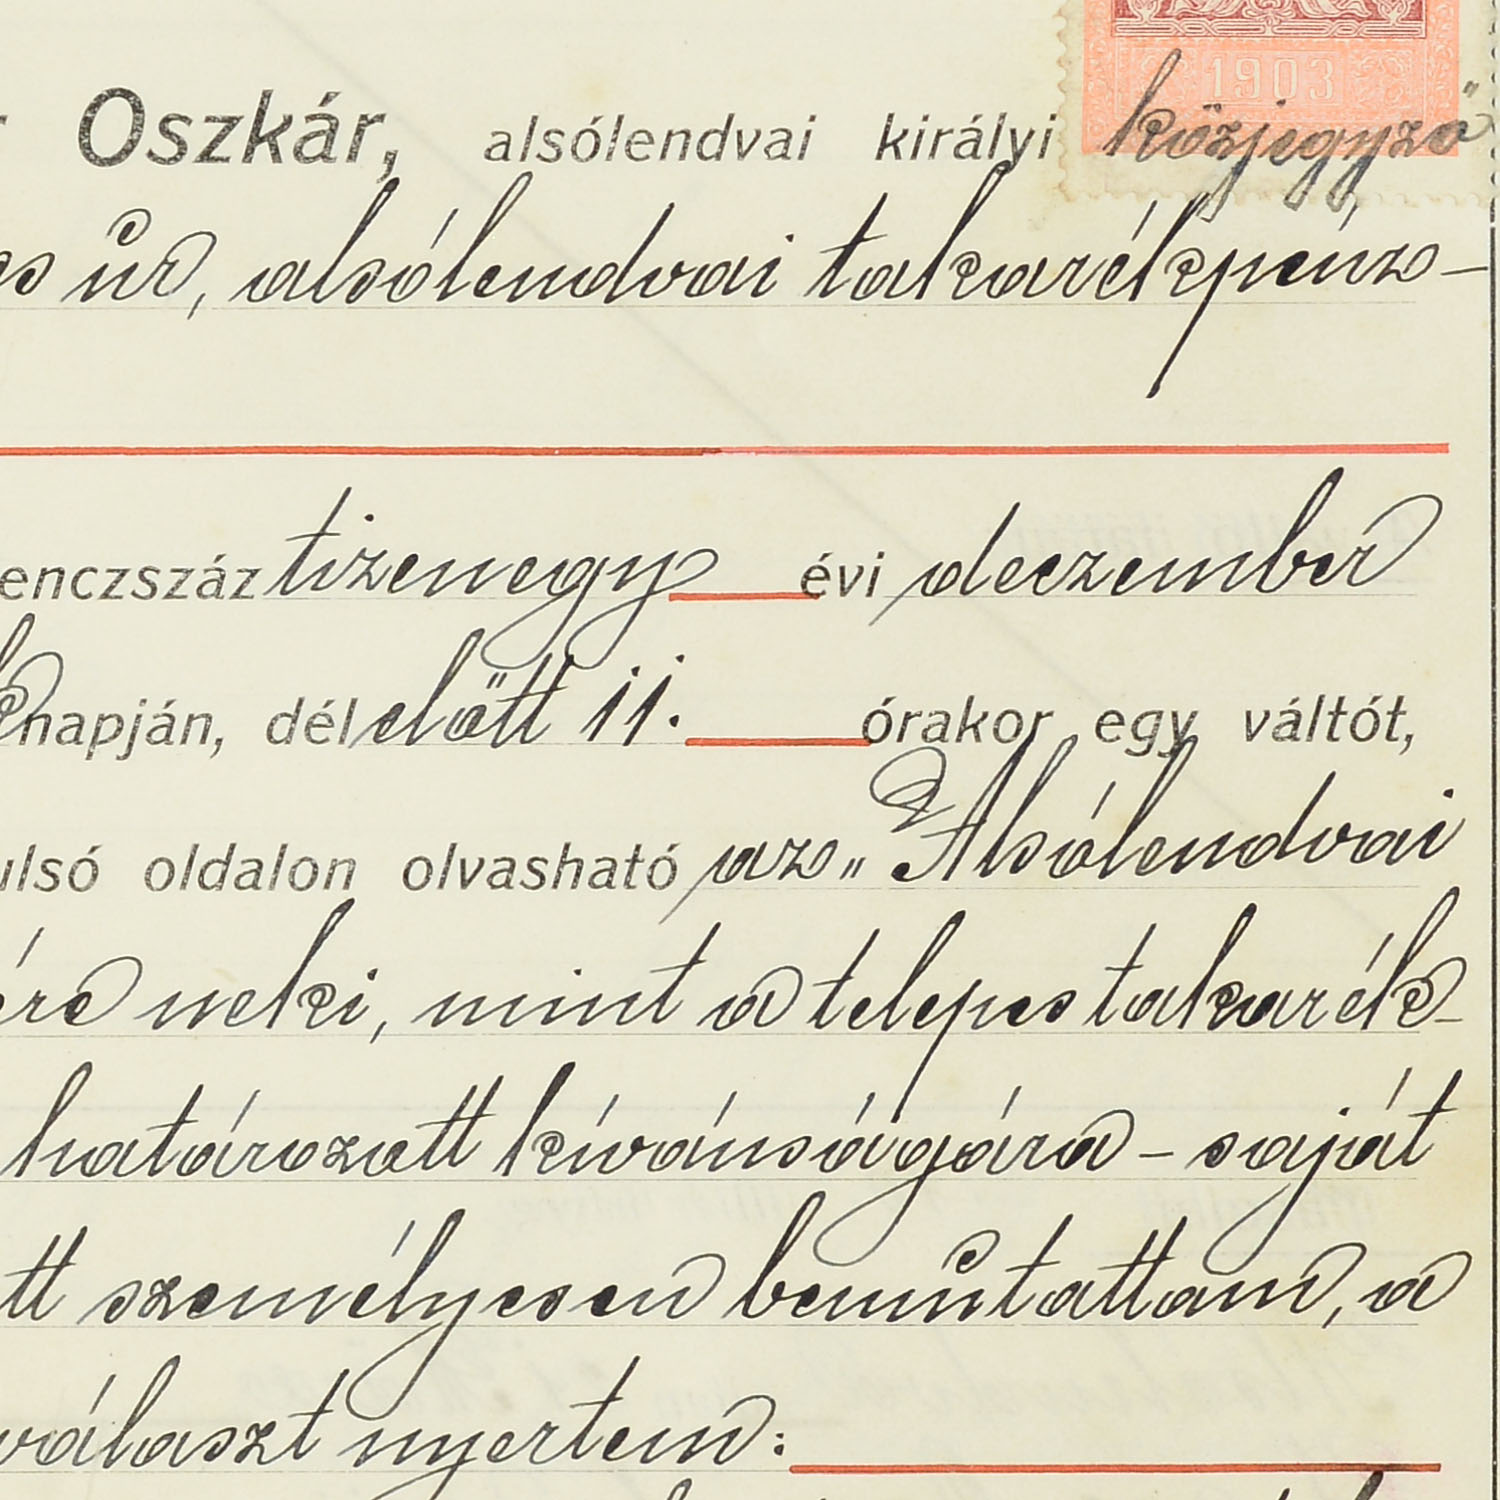 1903
Oszkár, alsólendvai királyi közjegyző
úr, alsólendvai takarékpénz-
enczszáz tizenegy évi deczember
napján, délelőtt 11. órakor egy váltót,
ulsó oldalon olvasható az „Alsólendvai
ére neki, mint a telepes takarék-
határozott kívánságára - saját
tt személyesen bemutattam, a
választ nyertem: